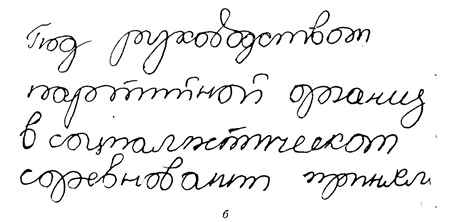 Под руководством
партийной организ
в социалистическом
соревновании приняли
б